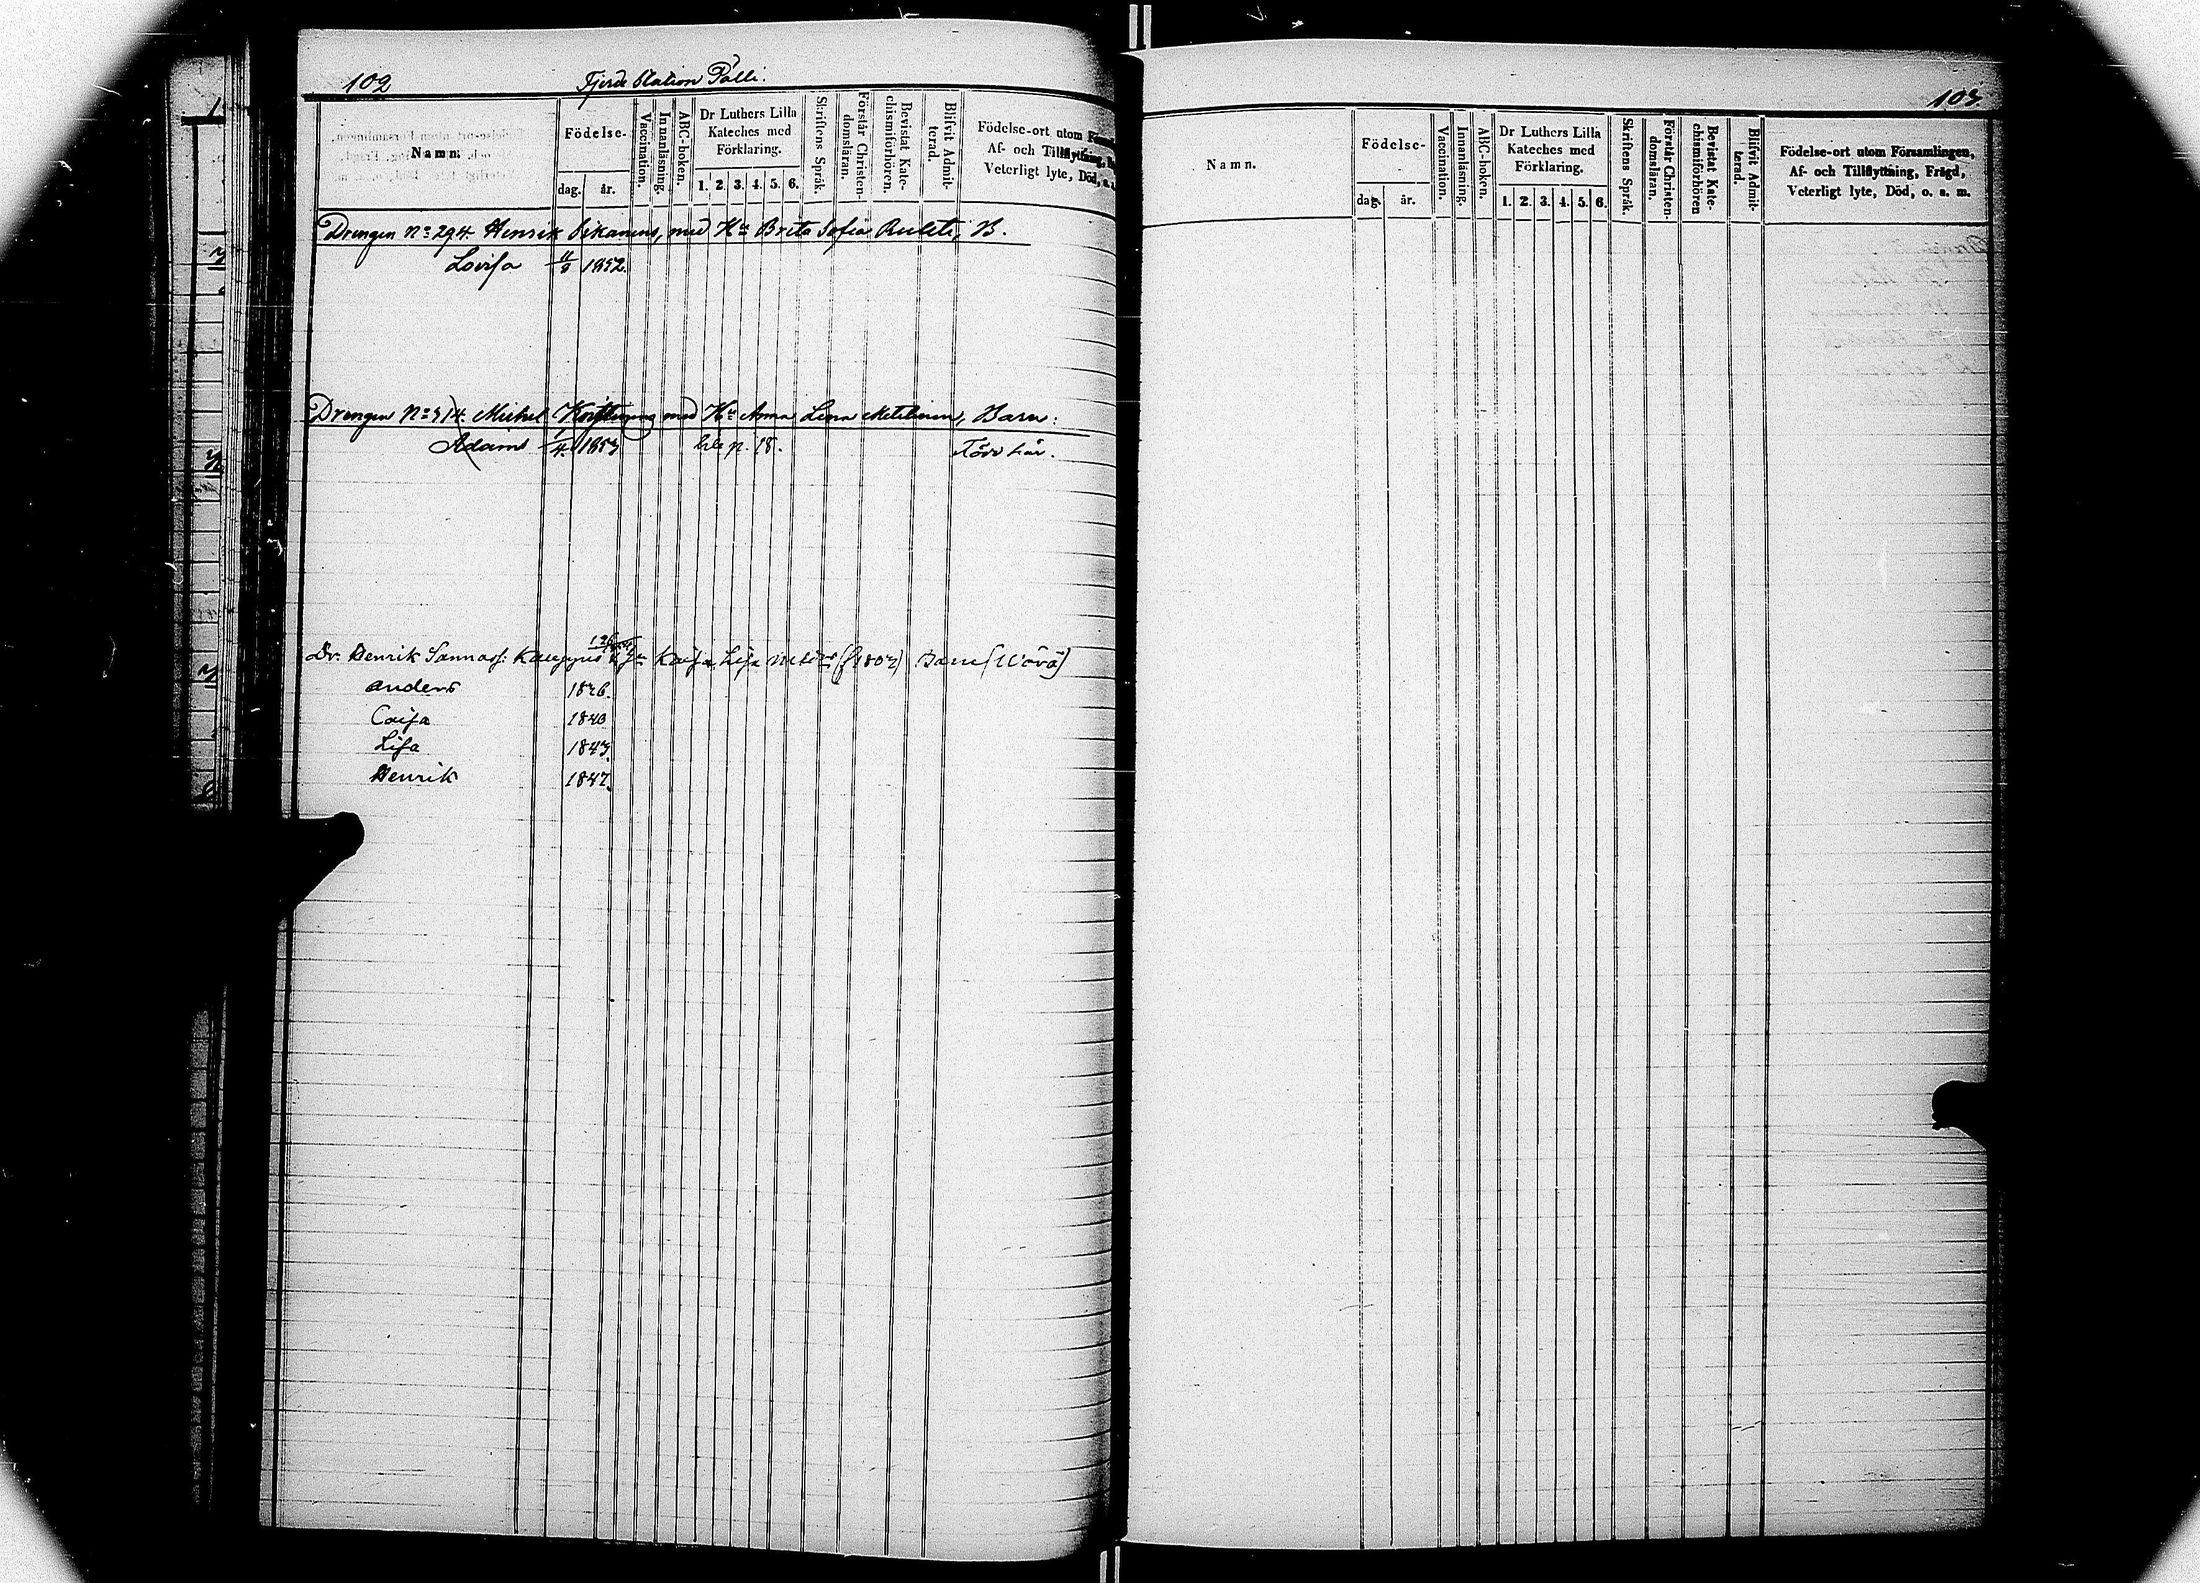 102
Fjerde Station Pälli.
Namn.
Födelse-
dag. år.
Vaccination.
Innanläsning.
ABC-boken.
Dr Luthers Lilla
Kateches med
Förklaring.
1. 2. 3. 4. 5. 6.
Skriftens Språk.
Förstår Christen-
domsläran.
Bevistat Kate-
chismiförhören.
Blifvit Admit-
terad.
Födelse-ort utom
Af- och Tillflyttning,
Veterligt lyte, Död,
Drengen No 294. Henrik Pikarens, med Hu Brita Sofia B.
Lovisa 1852.
Drengen No 314. Michel med Hu Anna Lena Barn:
Adam 1853 18.
Dr. Henrik Kaisa Lisa
Anders 1826.
Caisa 1840
Lisa 1843.
Henrik 1847.
103.
Namn.
Födelse-
dag. år.
Vaccination.
Innanläsning.
ABC-boken.
Dr Luthers Lilla
Kateches med
Förklaring.
1. 2. 3. 4. 5. 6.
Skriftens Språk.
Förstår Christen-
domsläran.
Bevistat Kate-
chismiförhören
Blifvit Admit-
terad.
Födelse-ort utom Församlingen,
Af- och Tillflyttning, Frägd,
Veterligt lyte, Död, o. a. m.